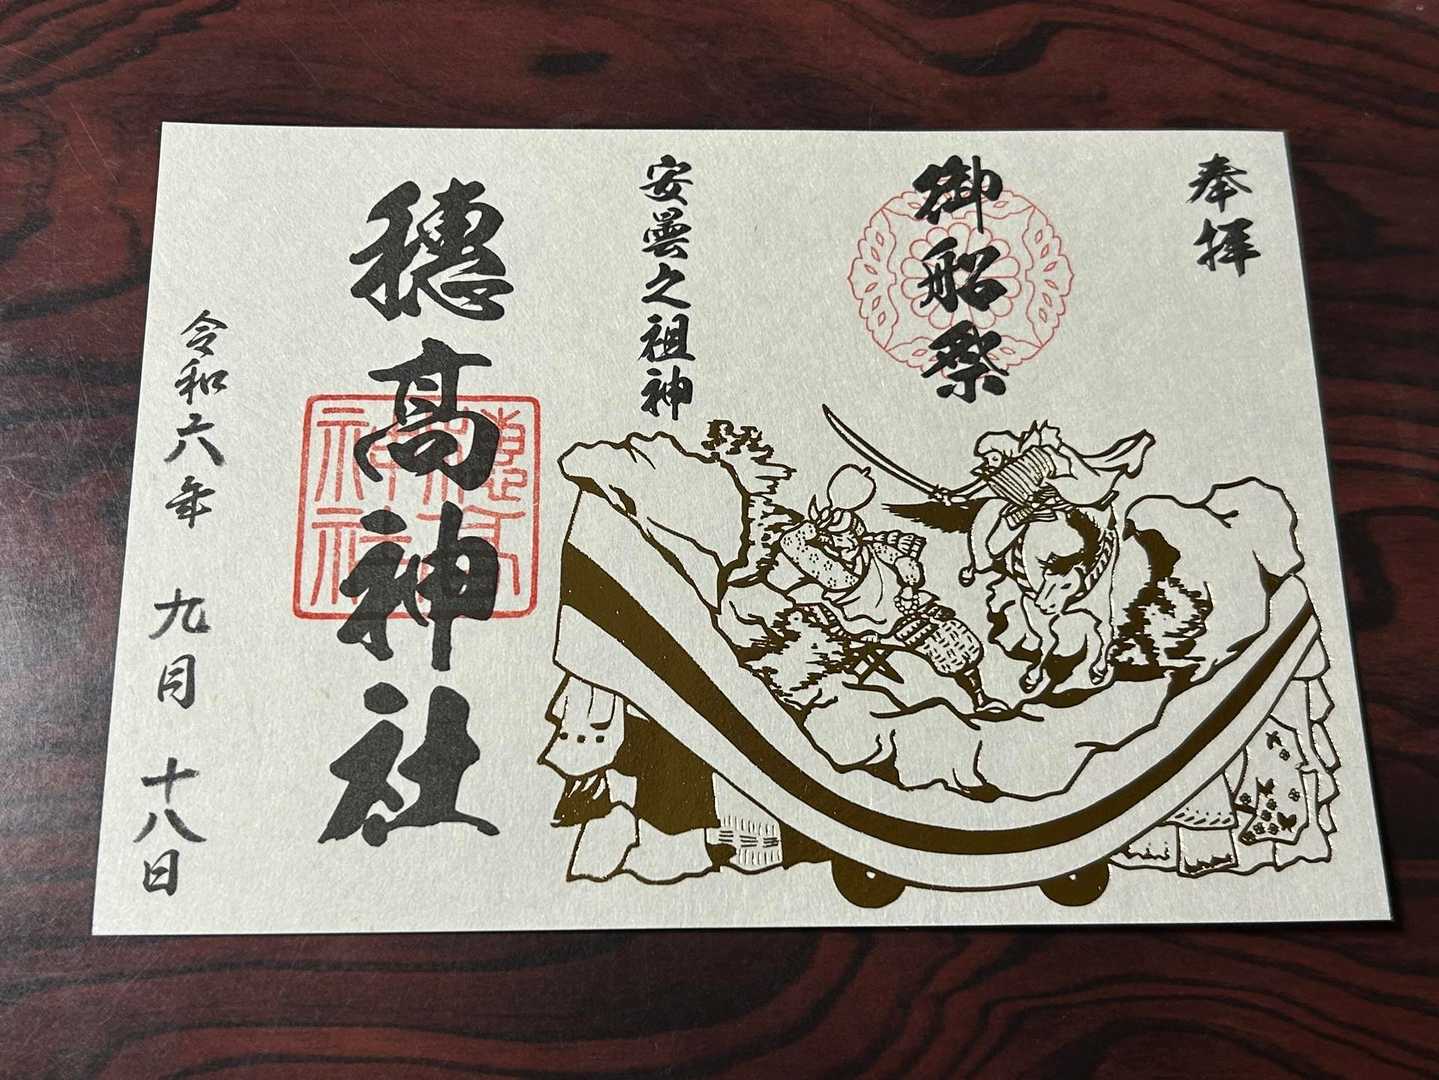 奉拝
御船祭
安曇之祖神
穂高神社
令和六年 九月 十八日